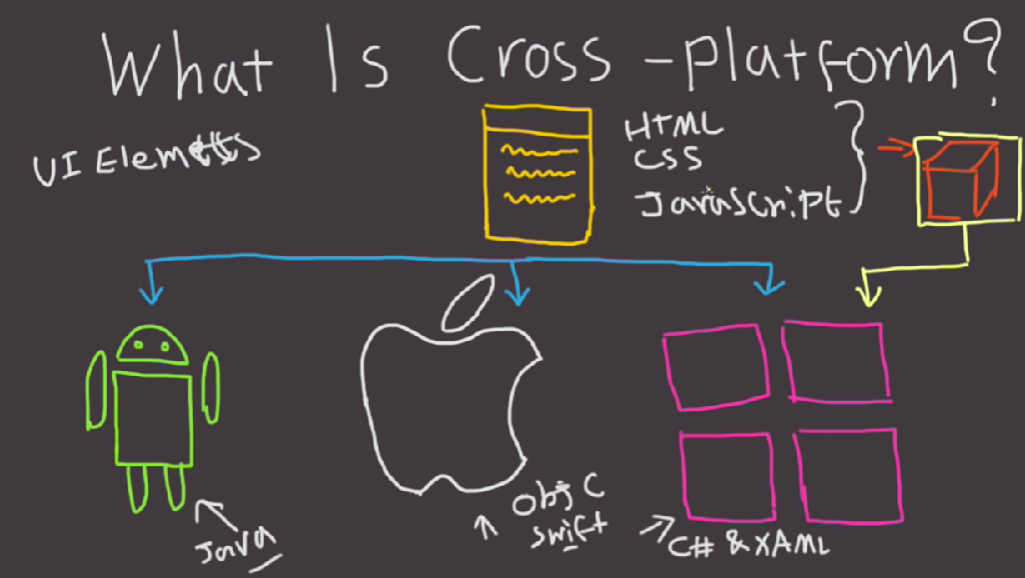 What Is Cross-platform?
UI Elements
HTML
CSS
JavaScript
Java
Obj C
Swift
C# & XAML